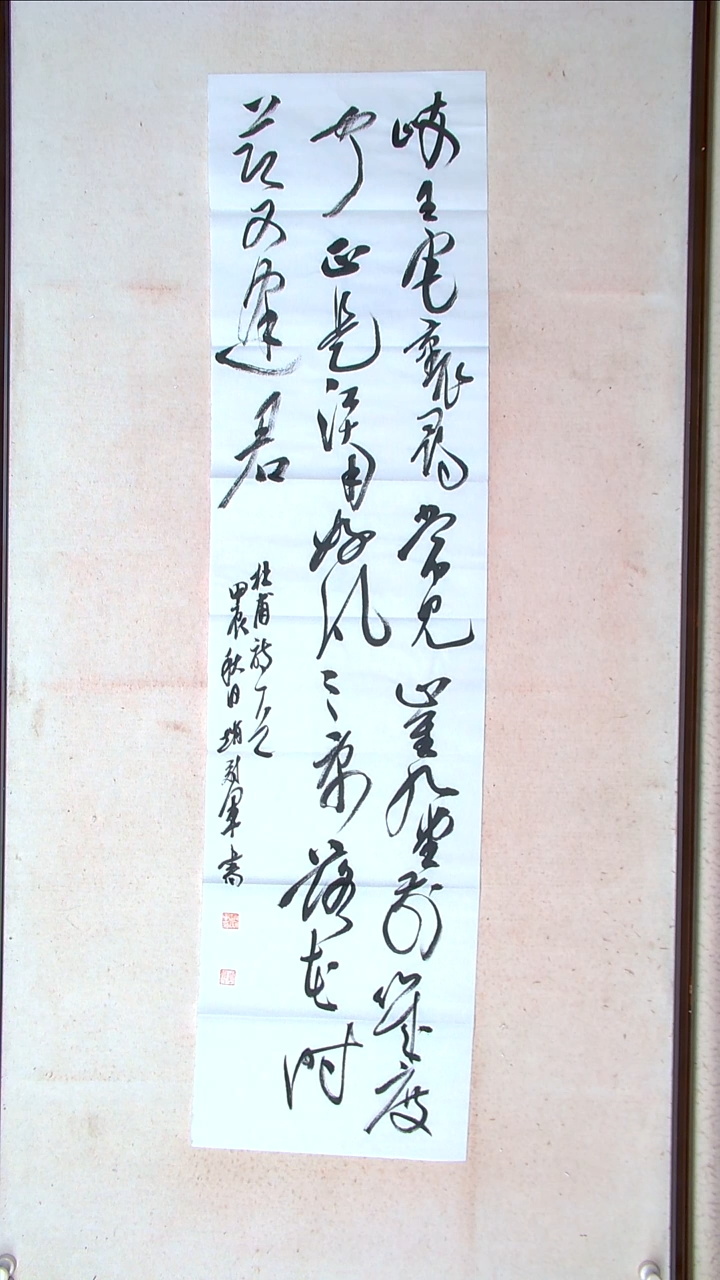 岐王宅裏尋常見崔九堂前幾度
闻正是江南好风景落花时
节又逢君
杜甫诗一首
甲辰秋日趙军書